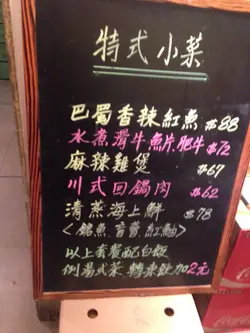 特式小菜
巴蜀香辣紅魚 $88
水煮滑牛魚片肥牛 $72
麻辣雞煲 $67
川式回鍋肉 $62
清蒸海上鮮 $78
以上套餐配白飯
例湯或菜 轉凍飲加2元